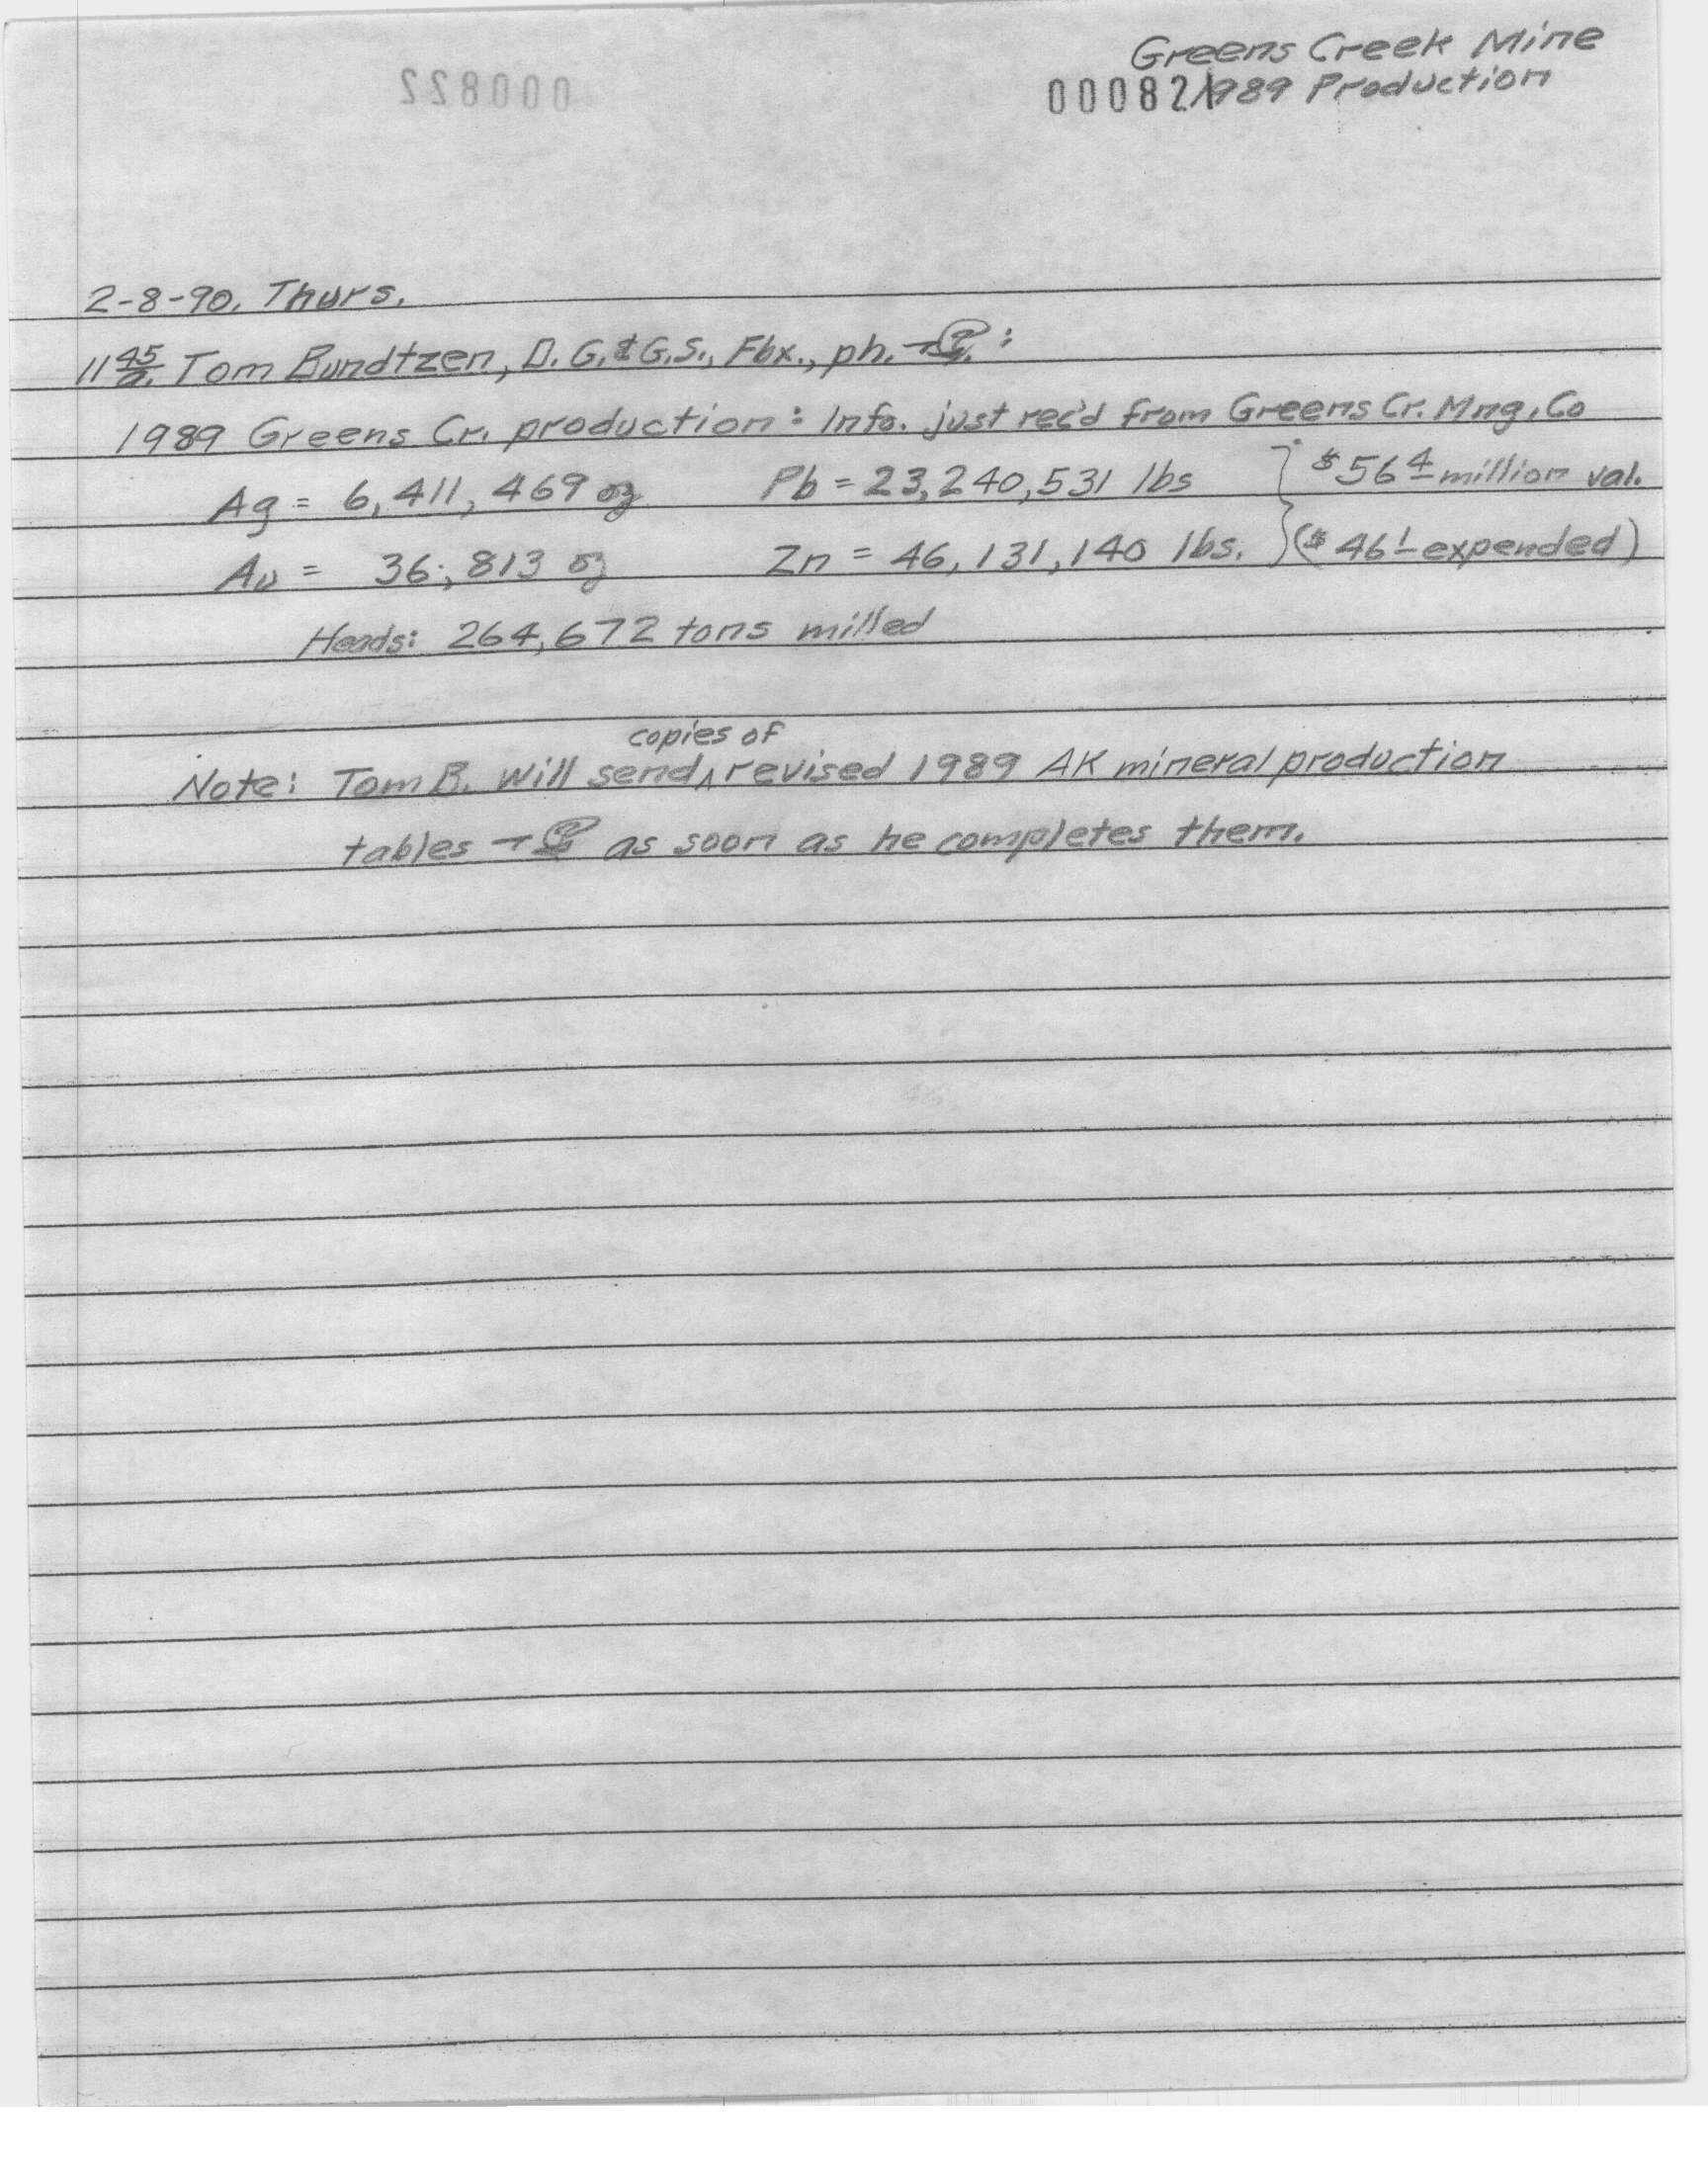 Greens Creek Mine
000822
000821
1989 Production
2-8-90. Thurs.
11 45 a. Tom Bundtzen, D. G. & G.S., Fbx., ph. → :
1989 Greens Cr. production: Info. just rec'd from Greens Cr. Mng. Co
Ag = 6,411,469 oz Pb = 23,240,531 lbs $56 4 million val.
Au = 36,813 oz Zn = 46,131,140 lbs. ($46 1 expended)
Heads: 264,672 tons milled
copies of
Note: Tom B. will send ^ revised 1989 AK mineral production
tables → as soon as he completes them.